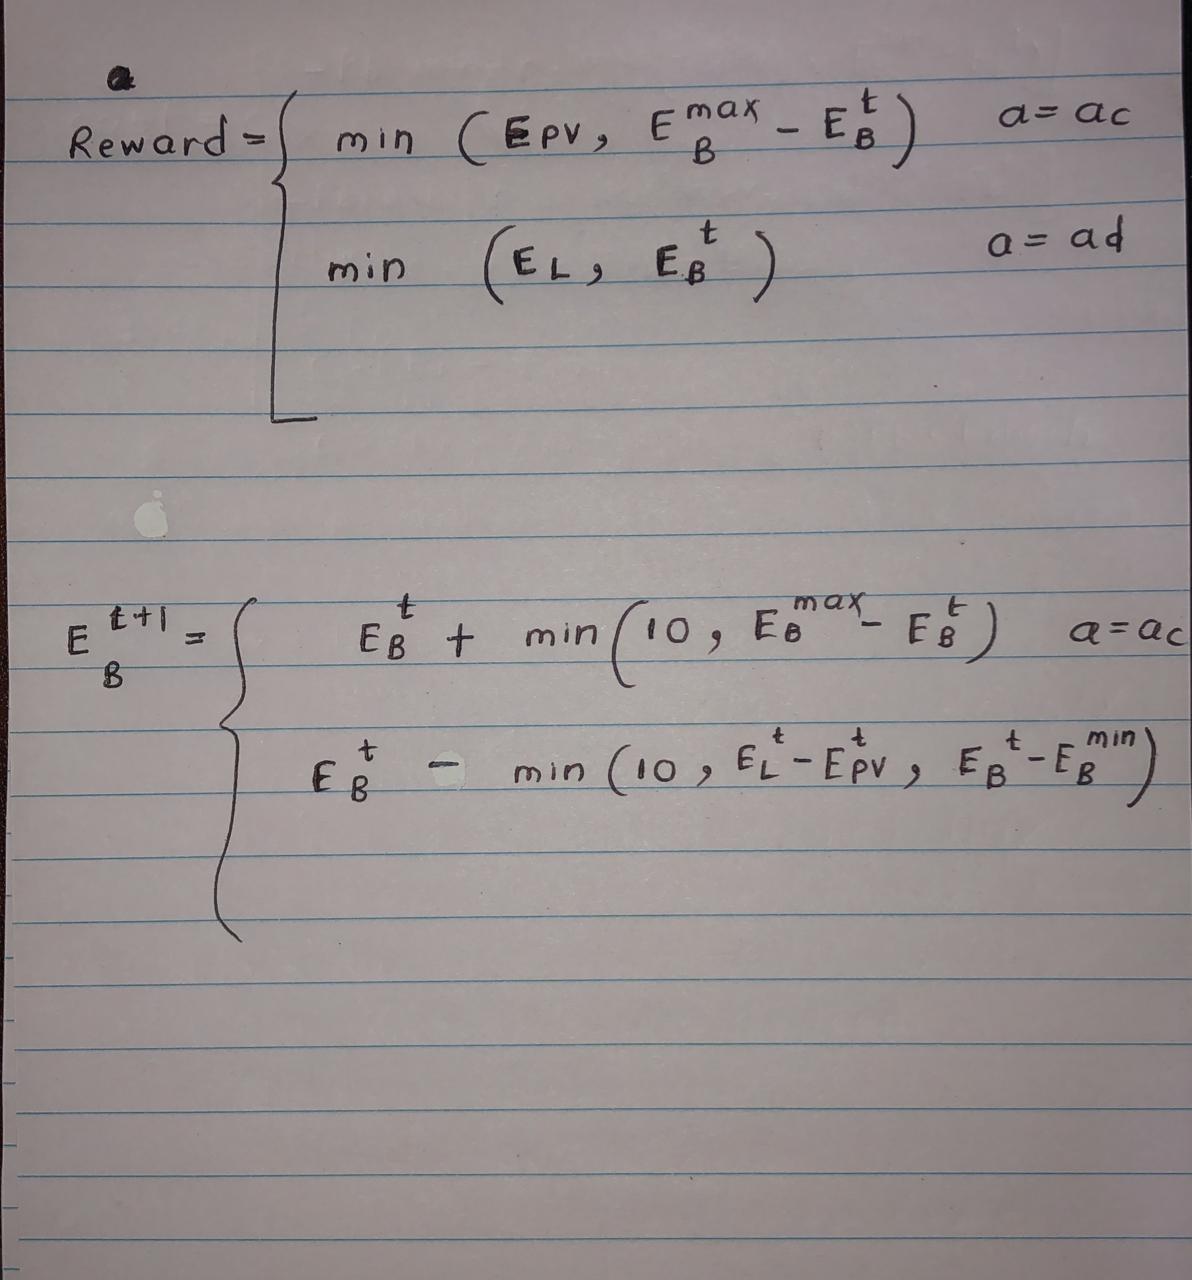 Reward = { min (EPV, E_B^max - E_B^t) a = ac
min (EL, E_B^t) a = ad
E_B^t+1 = { E_B^t + min (10, E_B^max - E_B^t) a = ac
E_B^t - min (10, E_L^t - E_PV^t, E_B^t - E_B^min)